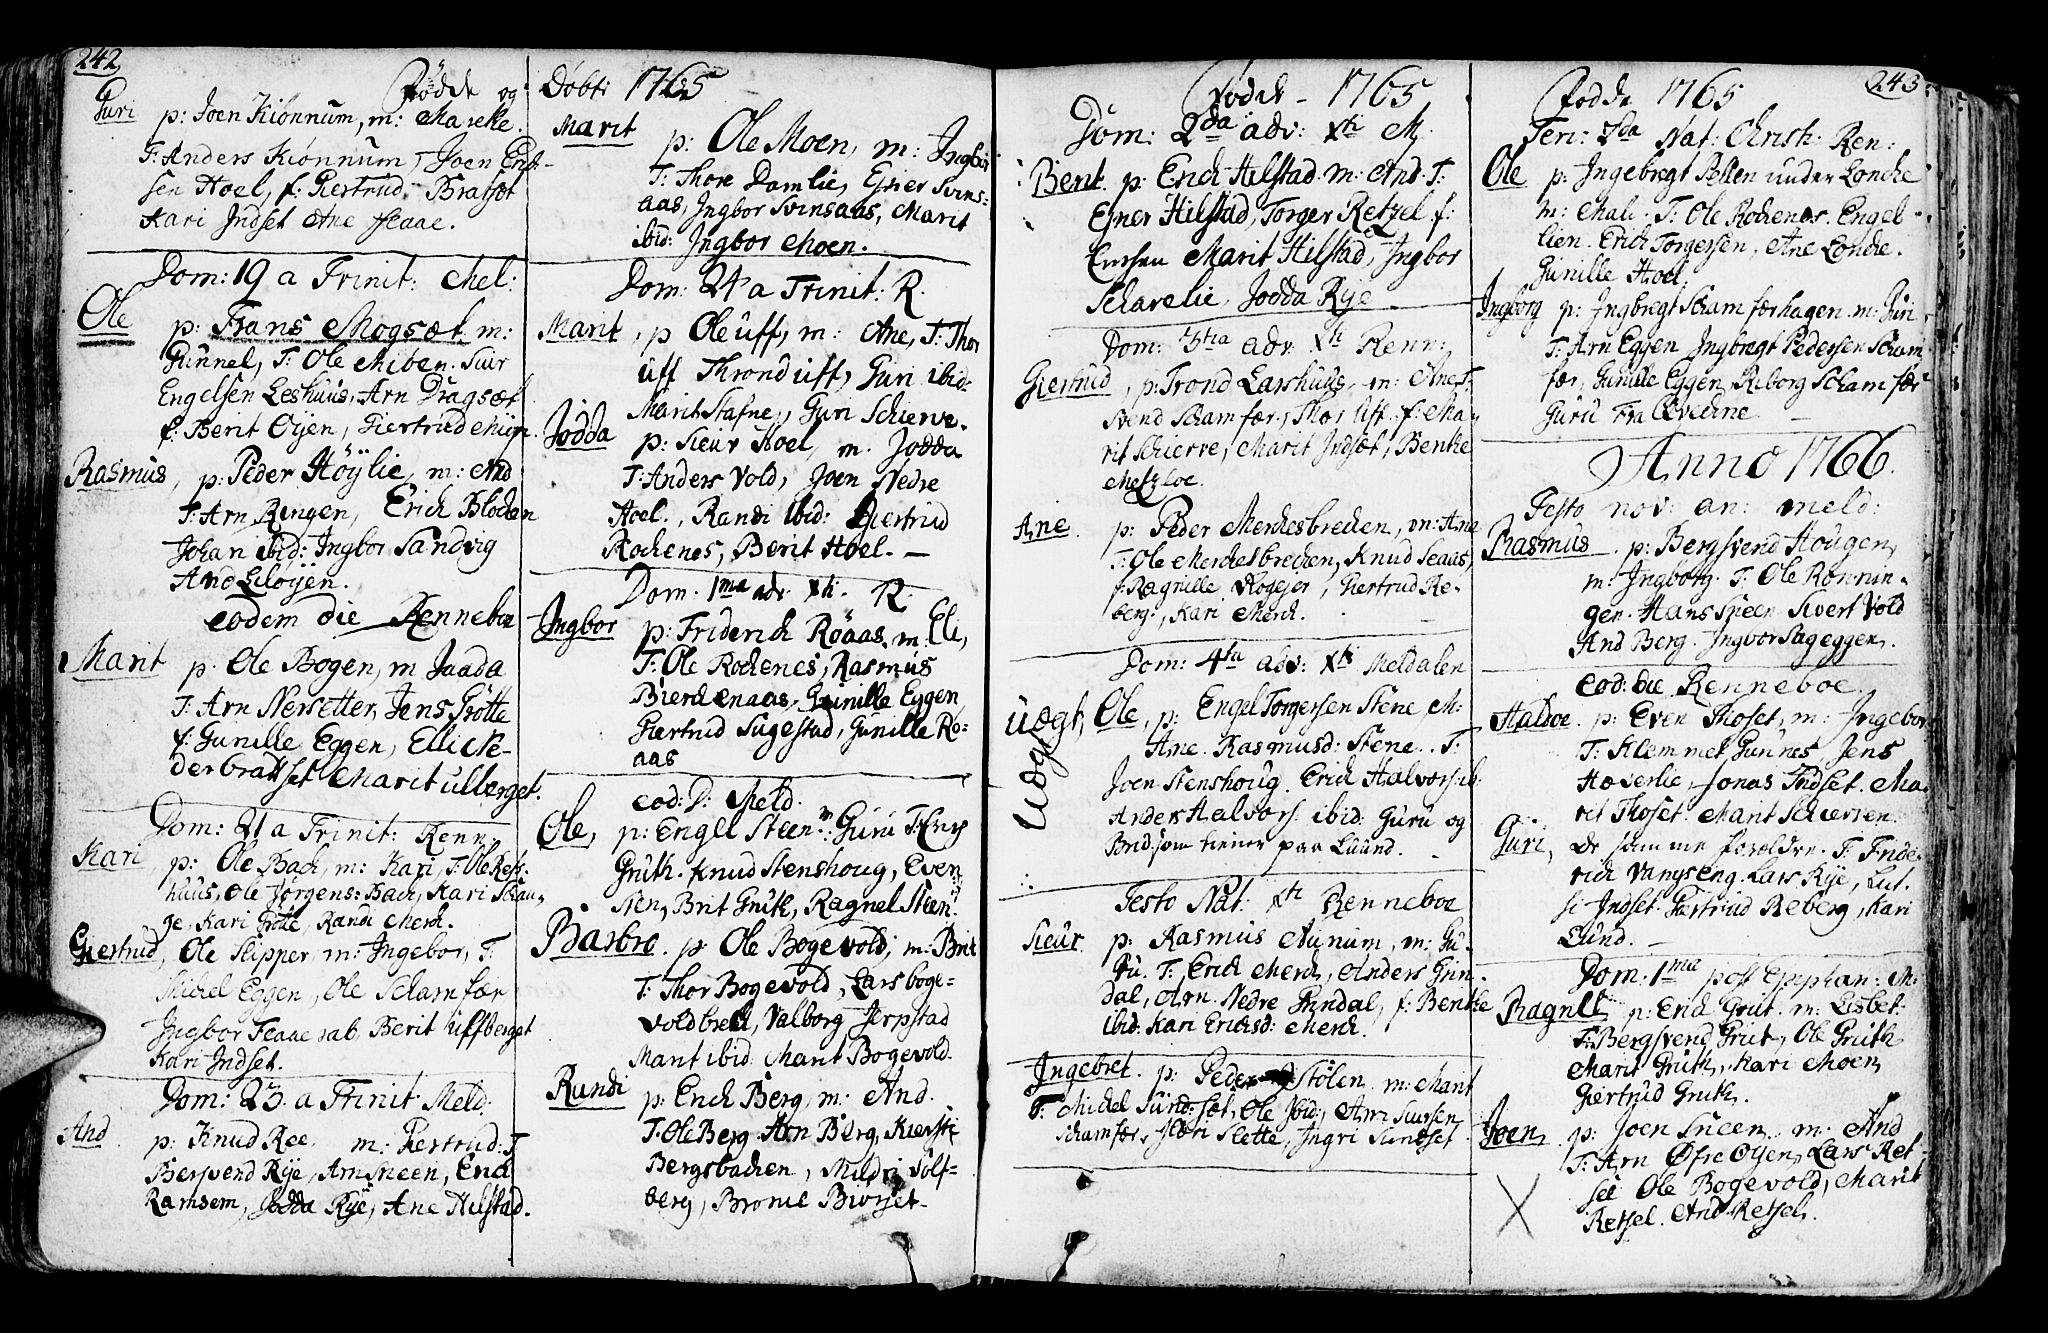 242
Fødde og Døbte 1765
Guri p: Joen Kiønnum, m: Marette.
T: Anders Kiønnum, Joen Erik-
sen Hoel, f: Giertrud Bratsæt
Kari Indset Ane Aaae.
Dom: 19 a Trinit: Mel:
Ole
p: Frans Mogsæt m:
Gunnel, T: Ole Miben. Siur
Engelsen Leshuus, Arn Dragsæt
f: Berit Øyen, Giertrud
Rasmus, p: Peder Høylie, m: And
T: Arn Ringen, Erich
Johan ibid: Ingbor Sandvig
And Liløyen.
eodem die Renneboe
Marit p. Ole Bogen, m Jaada
T: Arn Nersetter, Jens Grøtte
f: Gunille Eggen, Ellicke-
der bratset Marit ullberget.
Dom: 21 a Trinit: Renn:
Kari, p: Ole Bach, m: Kari, T: Ole Rets
huus, Ole Jørgens: Bach, Kari Skau-
ge, Kari Grøtte, Randi Merch.
Giertrud, Ole Slipper, m: Ingebor, T.
Michel Eggen, Ole Schamfær
Ingbor Faae sab, Berit ulfsberget
Kari Indset.
Dom: 23. a Trinit Meld:
And p: Knud Ree. m: Giertrud. T
Bersvend Rye, Arn Sneen, Erich
Ramsem, Jodda Rye, Ane Hilstad.
Marit p: Ole Moen, m: Ingbor
T: Thore Damlie, Esier Svins-
aas, Ingbor Svinsaas, Marit
ibid: Ingbor Moen.
Dom: 24 a Trinit: R.
Marit, p Ole uff, m: Ane, T: Thor
uff Thrond uff, Guri ibid:
Marit Stafne, Guri Schierve.
Jodda p: Sieur Hoel, m. Jodda
T: Anders Vold, Joen Nedre
Hoel., Randi ibid: Giertrud
Rochenes, Berit Hoel. —
Dom. 1ma adv Xti. R.
Ingbor p: Friderich Røaas, m. Eli,
T: Ole Rochenes, Rasmus
Bierchenaas, Gunille Eggen
Giertrud Sugestad, Gunille Ro=
aas
eod: D: Meld.
Ole, p: Engel Steen m Guru T: Engs
Gruth. Knud Stenshoug, Even
Sten, Brit Gruth, Ragnel Steen.
Barbro. p: Ole Bogevold, m: Brit
T: Thor Bogevold, Lars boge=
voldbrech, Valborg Jerpstad
Marit ibid: Marit Bogevold.
Rundi p: Erich Berg, m: And.
T: Ole Berg Arn Berg, Kiersti
Bergsbachen, Mildri Solf-
berg, Bronil Biorset-
243
Fødde - 1765
Dom: 2da adv: Xti M.
Bent. p: Erich Hilstad. m: And T:
Ejner Hilstad, Torger Retzel f:
Marit Hilstad, Ingbor
Schavelie, Jodda Rye
Dom: 3tia adv. Xti Renn:
Giertrud, p: Trond Larshuus, m: Ane T.
Svend Schamfær, Thor uff. f: Ma-
rit Schierve, Marit Indsæt, Benke
Metzloe.
Ane. p: Peder Merchesbrechen, m: Ane
T: Ole Merchesbrechen, Knud Seaas,
f: Ragnille Hogejer, Giertrud Re-
berg, Kari Merch.
Dom: 4ta adv: Xti Meldalen
uægt, Ole, p: Engel Torgersen Stene M:
Uægt
Ane Rasmusd: Stene. T:
Joen Stenshoug. Erich Halvors. ib
Ander Halvors: ibid: Guru og
Brid: som tiener paa Luund.
Festo Nat: Xti Renneboe
Sieur p: Rasmus Aunum, m: Gu-
ru. T: Erich Merch, Anders Grin-
dal, Arn Nedre Grindal, f: Benke
ibid: Kari Erichsd: Merch.
Ingebret. p: Peder Stølen m: Marit
T: Michel Sundset, Ole ibid: Arn Siursen
Schamfær, Mari Slette, Ingri Sundset
Fødde 1765
Feri: 2da Nat: Christi: Ren:
Ole p: Ingebregt Bellen under Lonche
m: Mali. T: Ole Rochenes. Engel
lien. Erich Torgersen, Ane Lonche.
Gunille Hoel.
Ingborg p: Ingbregt Schamfærhagen. m: Guri
T: Arn Eggen Ingbregt Pedersen Scham
fær, Gunille Eggen, Kiborg Schamfær
Guru Fra
Anno 1766.
Festo nov: an: meld:
Rasmus. p: Bergsvend Hougen,
m: Ingborg. T: Ole Rønnin-
gen. Hans Sneen Sivert Vold
And Berg. Ingvor Sageggen.
eod: die Renneboe.
Haldoe. p: Even Thoset, m: Ingebor
T: Klemmet Gunnes Jens
Hæverlie, Jonas Indset. Ma-
rit Thoset. Marit Schierven.
Guri, de samme forældre. T: Fride-
rich Vangseng. Lars Rye, Lut-
si Indset. Giertrud Reberg, Kari
Lund. —
Dom: 1ma post Epiphan: M:
Ragnill p: Erich Grut. m: Lisbet.
T: Bergsvend Grut, Ole Gruth
Marit Gruth, Kari Moen,
Giertrud Gruth.
Joen, p: Joen Sneen. m: And
T: Arn Øfre Øyen, Lars Ret-
sel Ole Bogevold, Marit
Retsel. And Retsel.
X